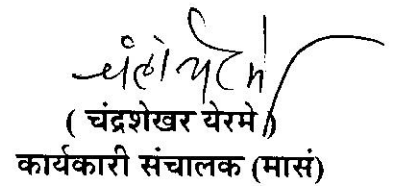 ( चंद्रशेखर येरमे )
कार्यकारी संचालक (मासं)